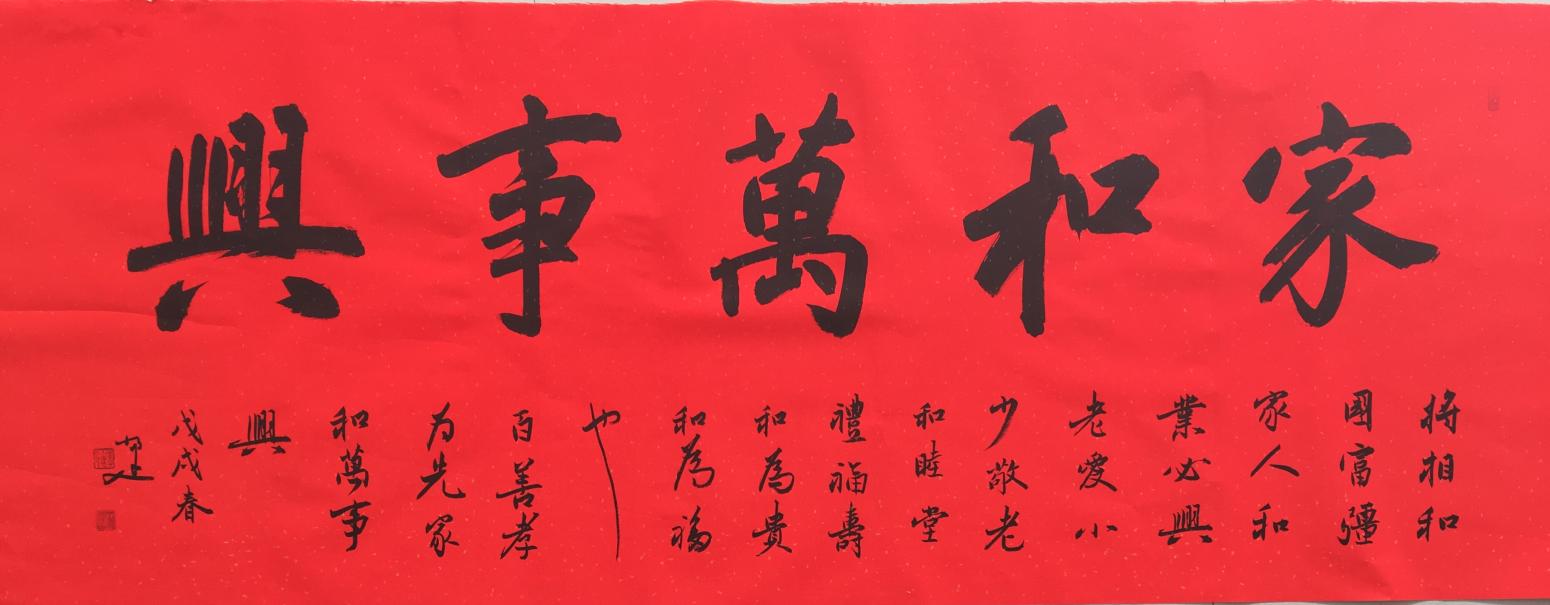 家和萬事興
將相和
國富疆
家人和
業必興
老愛小
少敬老
和睦堂
禮福壽
和為貴
和為福
也
百善孝
为先家
和萬事
興
戊戌春